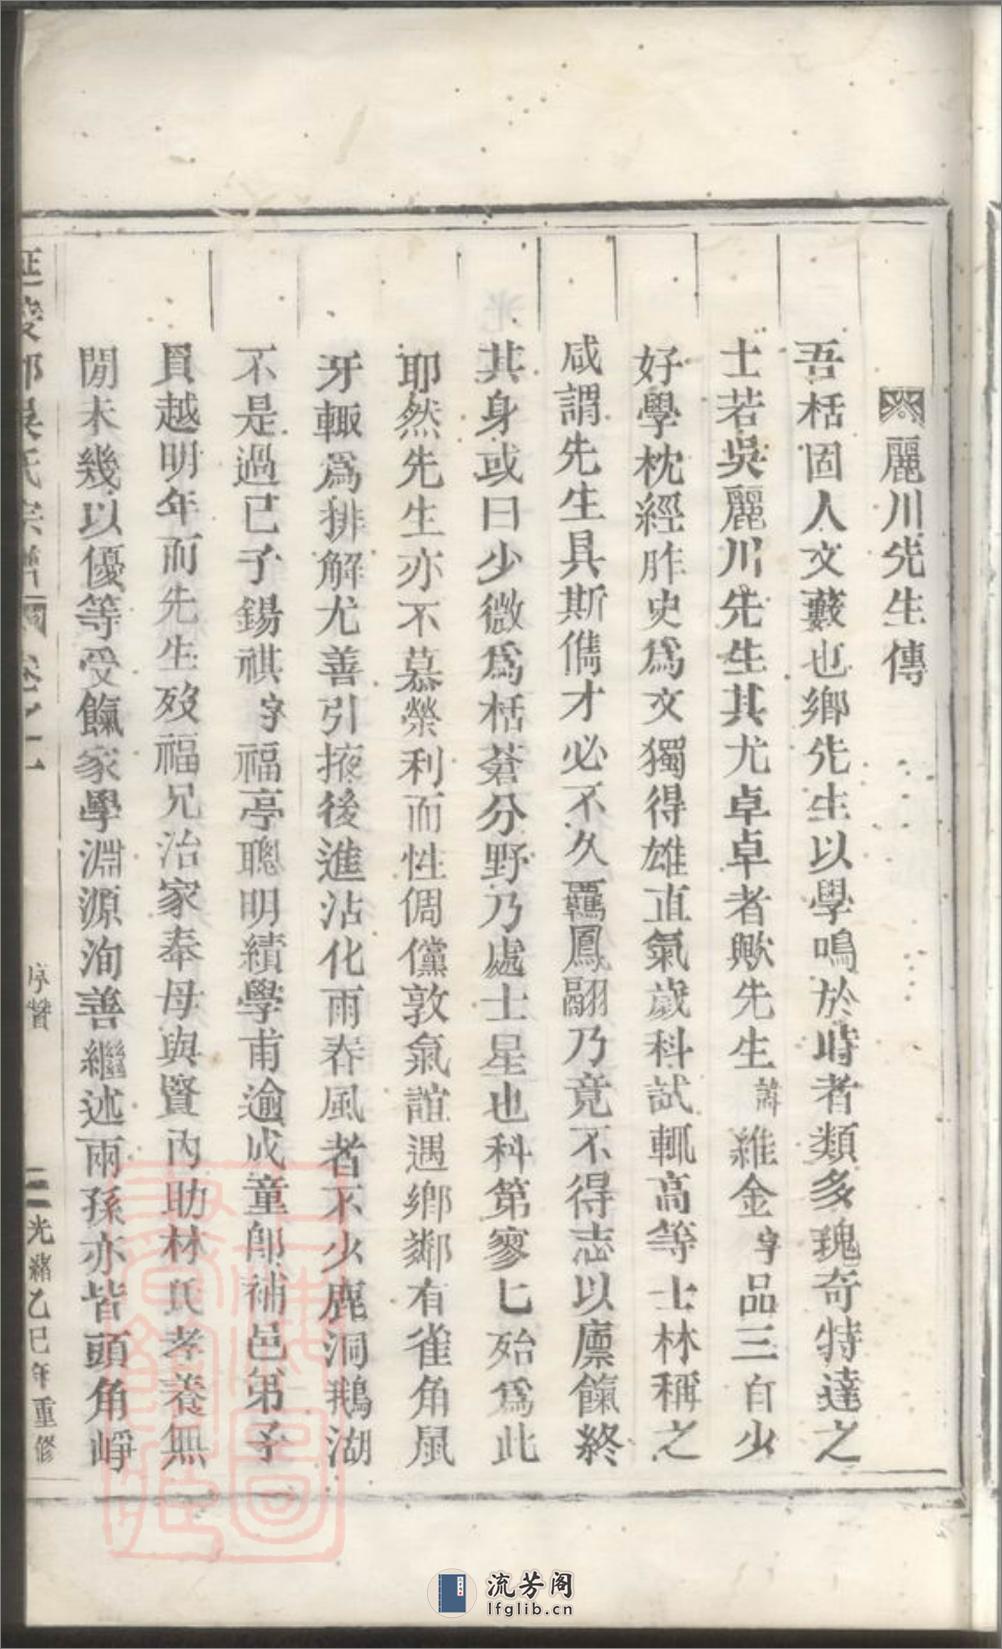 麗川先生傳
吾栝固人文藪也鄉先生以學鳴於時者類多瑰奇特達之
士若吳麗川先生其尤卓卓者歟先生諱維金字品三自少
好學枕經胙史爲文獨得雄直氣歲科試輒高等士林稱之
咸謂先生具斯儁才必不久羈鳳翮乃竟不得志以廪餼終
其身或曰少微爲栝蒼分野乃處士星也科第寥七殆爲此
耶然先生亦不慕榮利而性倜儻敦氣誼遇鄉鄰有雀角鼠
牙輒爲排解尤善引掖後進沾化雨春風者不少鹿洞鵝湖
不是過已子錫祺字福亭聰明績學甫逾成童卽補邑弟子
員越明年而先生歿福兄治家奉母與賢內助林氏孝養無
閒未幾以優等受餼家學淵源洵善繼述兩孫亦皆頭角崢
延陵郡吳氏宗譜 卷之一
序贊
三
光緒乙巳年重修
流芳阁
lfglib.cn